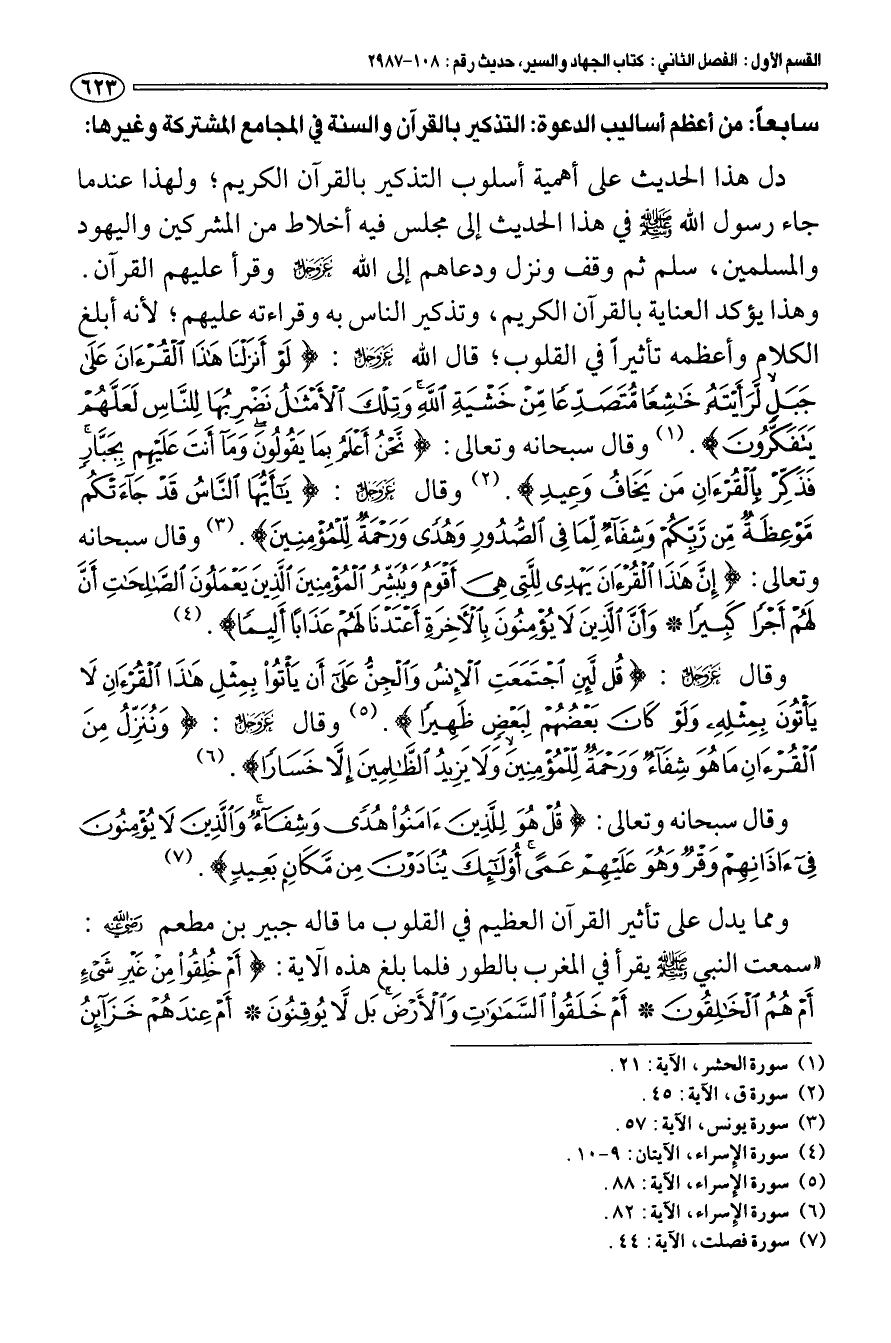 القسم الأول: الفصل الثاني: كتاب الجهاد والسير، حديث رقم: ١٠٨-٢٩٨٧
٦٢٣
سابعاً: من أعظم أساليب الدعوة: التذكير بالقرآن والسنة في المجامع المشتركة وغيرها:
دل هذا الحديث على أهمية أسلوب التذكير بالقرآن الكريم؛ ولهذا عندما
جاء رسول الله ﷺ في هذا الحديث إلى مجلس فيه أخلاط من المشركين واليهود
والمسلمين، سلم ثم وقف ونزل ودعاهم إلى الله عَزَّوَجَلَّ وقرأ عليهم القرآن.
وهذا يؤكد العناية بالقرآن الكريم، وتذكير الناس به وقراءته عليهم؛ لأنه أبلغ
الكلام وأعظمه تأثيراً في القلوب؛ قال الله عَزَّوَجَلَّ : ﴿ لَوْ أَنزَلْنَا هَٰذَا ٱلْقُرْءَانَ عَلَىٰ
جَبَلٍ لَّرَأَيْتَهُۥ خَٰشِعًا مُّتَصَدِّعًا مِّنْ خَشْيَةِ ٱللَّهِ ۚ وَتِلْكَ ٱلْأَمْثَٰلُ نَضْرِبُهَا لِلنَّاسِ لَعَلَّهُمْ
يَتَفَكَّرُونَ ﴾. (١) وقال سبحانه وتعالى: ﴿ نَّحْنُ أَعْلَمُ بِمَا يَقُولُونَ ۖ وَمَآ أَنتَ عَلَيْهِم بِجَبَّارٍ ۖ
فَذَكِّرْ بِٱلْقُرْءَانِ مَن يَخَافُ وَعِيدِ ﴾. (٢) وقال عَزَّوَجَلَّ : ﴿ يَٰٓأَيُّهَا ٱلنَّاسُ قَدْ جَآءَتْكُم
مَّوْعِظَةٌ مِّن رَّبِّكُمْ وَشِفَآءٌ لِّمَا فِى ٱلصُّدُورِ وَهُدًى وَرَحْمَةٌ لِّلْمُؤْمِنِينَ ﴾. (٣) وقال سبحانه
وتعالى: ﴿ إِنَّ هَٰذَا ٱلْقُرْءَانَ يَهْدِى لِلَّتِى هِىَ أَقْوَمُ وَيُبَشِّرُ ٱلْمُؤْمِنِينَ ٱلَّذِينَ يَعْمَلُونَ ٱلصَّٰلِحَٰتِ أَنَّ
لَهُمْ أَجْرًا كَبِيرًا * وَأَنَّ ٱلَّذِينَ لَا يُؤْمِنُونَ بِٱلْءَاخِرَةِ أَعْتَدْنَا لَهُمْ عَذَابًا أَلِيمًا ﴾. (٤)
وقال عَزَّوَجَلَّ : ﴿ قُل لَّئِنِ ٱجْتَمَعَتِ ٱلْإِنسُ وَٱلْجِنُّ عَلَىٰٓ أَن يَأْتُوا۟ بِمِثْلِ هَٰذَا ٱلْقُرْءَانِ لَا
يَأْتُونَ بِمِثْلِهِۦ وَلَوْ كَانَ بَعْضُهُمْ لِبَعْضٍ ظَهِيرًا ﴾. (٥) وقال عَزَّوَجَلَّ : ﴿ وَنُنَزِّلُ مِنَ
ٱلْقُرْءَانِ مَا هُوَ شِفَآءٌ وَرَحْمَةٌ لِّلْمُؤْمِنِينَ ۙ وَلَا يَزِيدُ ٱلظَّٰلِمِينَ إِلَّا خَسَارًا ﴾. (٦)
وقال سبحانه وتعالى: ﴿ قُلْ هُوَ لِلَّذِينَ ءَامَنُوا۟ هُدًى وَشِفَآءٌ ۖ وَٱلَّذِينَ لَا يُؤْمِنُونَ
فِىٓ ءَاذَانِهِمْ وَقْرٌ وَهُوَ عَلَيْهِمْ عَمًى ۚ أُو۟لَٰٓئِكَ يُنَادَوْنَ مِن مَّكَانٍۭ بَعِيدٍ ﴾. (٧)
ومما يدل على تأثير القرآن العظيم في القلوب ما قاله جبير بن مطعم رضي الله عنه :
«سمعت النبي ﷺ يقرأ في المغرب بالطور فلما بلغ هذه الآية: ﴿ أَمْ خُلِقُوا۟ مِنْ غَيْرِ شَىْءٍ
أَمْ هُمُ ٱلْخَٰلِقُونَ * أَمْ خَلَقُوا۟ ٱلسَّمَٰوَٰتِ وَٱلْأَرْضَ ۚ بَل لَّا يُوقِنُونَ * أَمْ عِندَهُمْ خَزَآئِنُ
(١) سورة الحشر، الآية: ٢١.
(٢) سورة ق، الآية: ٤٥.
(٣) سورة يونس، الآية: ٥٧.
(٤) سورة الإسراء، الآيتان: ٩-١٠.
(٥) سورة الإسراء، الآية: ٨٨.
(٦) سورة الإسراء، الآية: ٨٢.
(٧) سورة فصلت، الآية: ٤٤.